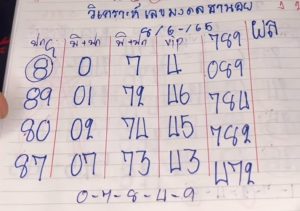 วิเคราะห์ เลข มงคล ฮานอย
8/6/65
VIP 789 ผล
8 0 7 4 089
89 01 72 46 784
80 02 74 45 782
87 07 73 43 472
0-7-8-4-9